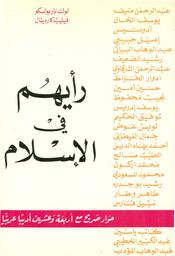 لوك باربولسكو
فيليپ كاردينال
رأيهم
في
الإسلام
حوار صريح مع أربعة وعشرين أديبًا عربيًا
عبد الرحمن منيف
يوسف الخال
أدونيس
إميل حبيبي
عبد الوهاب البياتي
رشيد الضعيف
عبد الرحمن الشرقاوي
ادوار الخراط
حسين أمين
نجيب محفوظ
يوسف إدريس
توفيق الحكيم
لويس عوض
جمال الغيطاني
أحمد بهاء الدين
الطيب صالح
محمد أركون
محمود المسعدي
رشيد بوجدرة
الطاهر وطار
نبيل فارس
كاتب ياسين
عبد الكبير الخطيبي